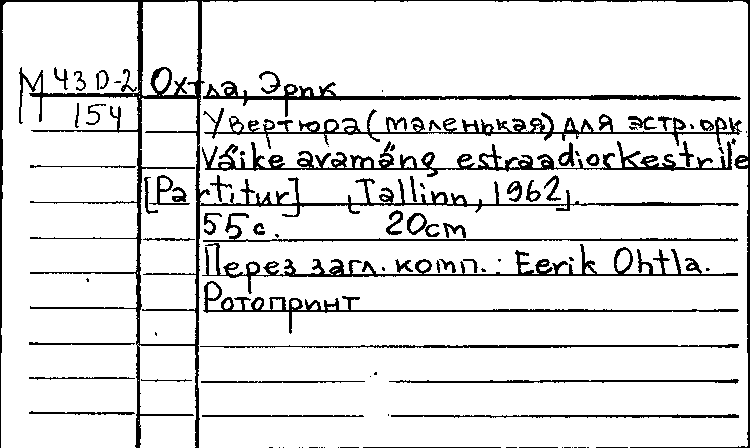 М 43 D-2 Охтла, Эрик
154
Увертюра (маленькая) для эстр. орк.
Väike avamäng estraadiorkestrile
[Partitur] [Tallinn, 1962].
55 с. 20cm
Перез загл. комп.: Eerik Ohtla.
Ротопринт